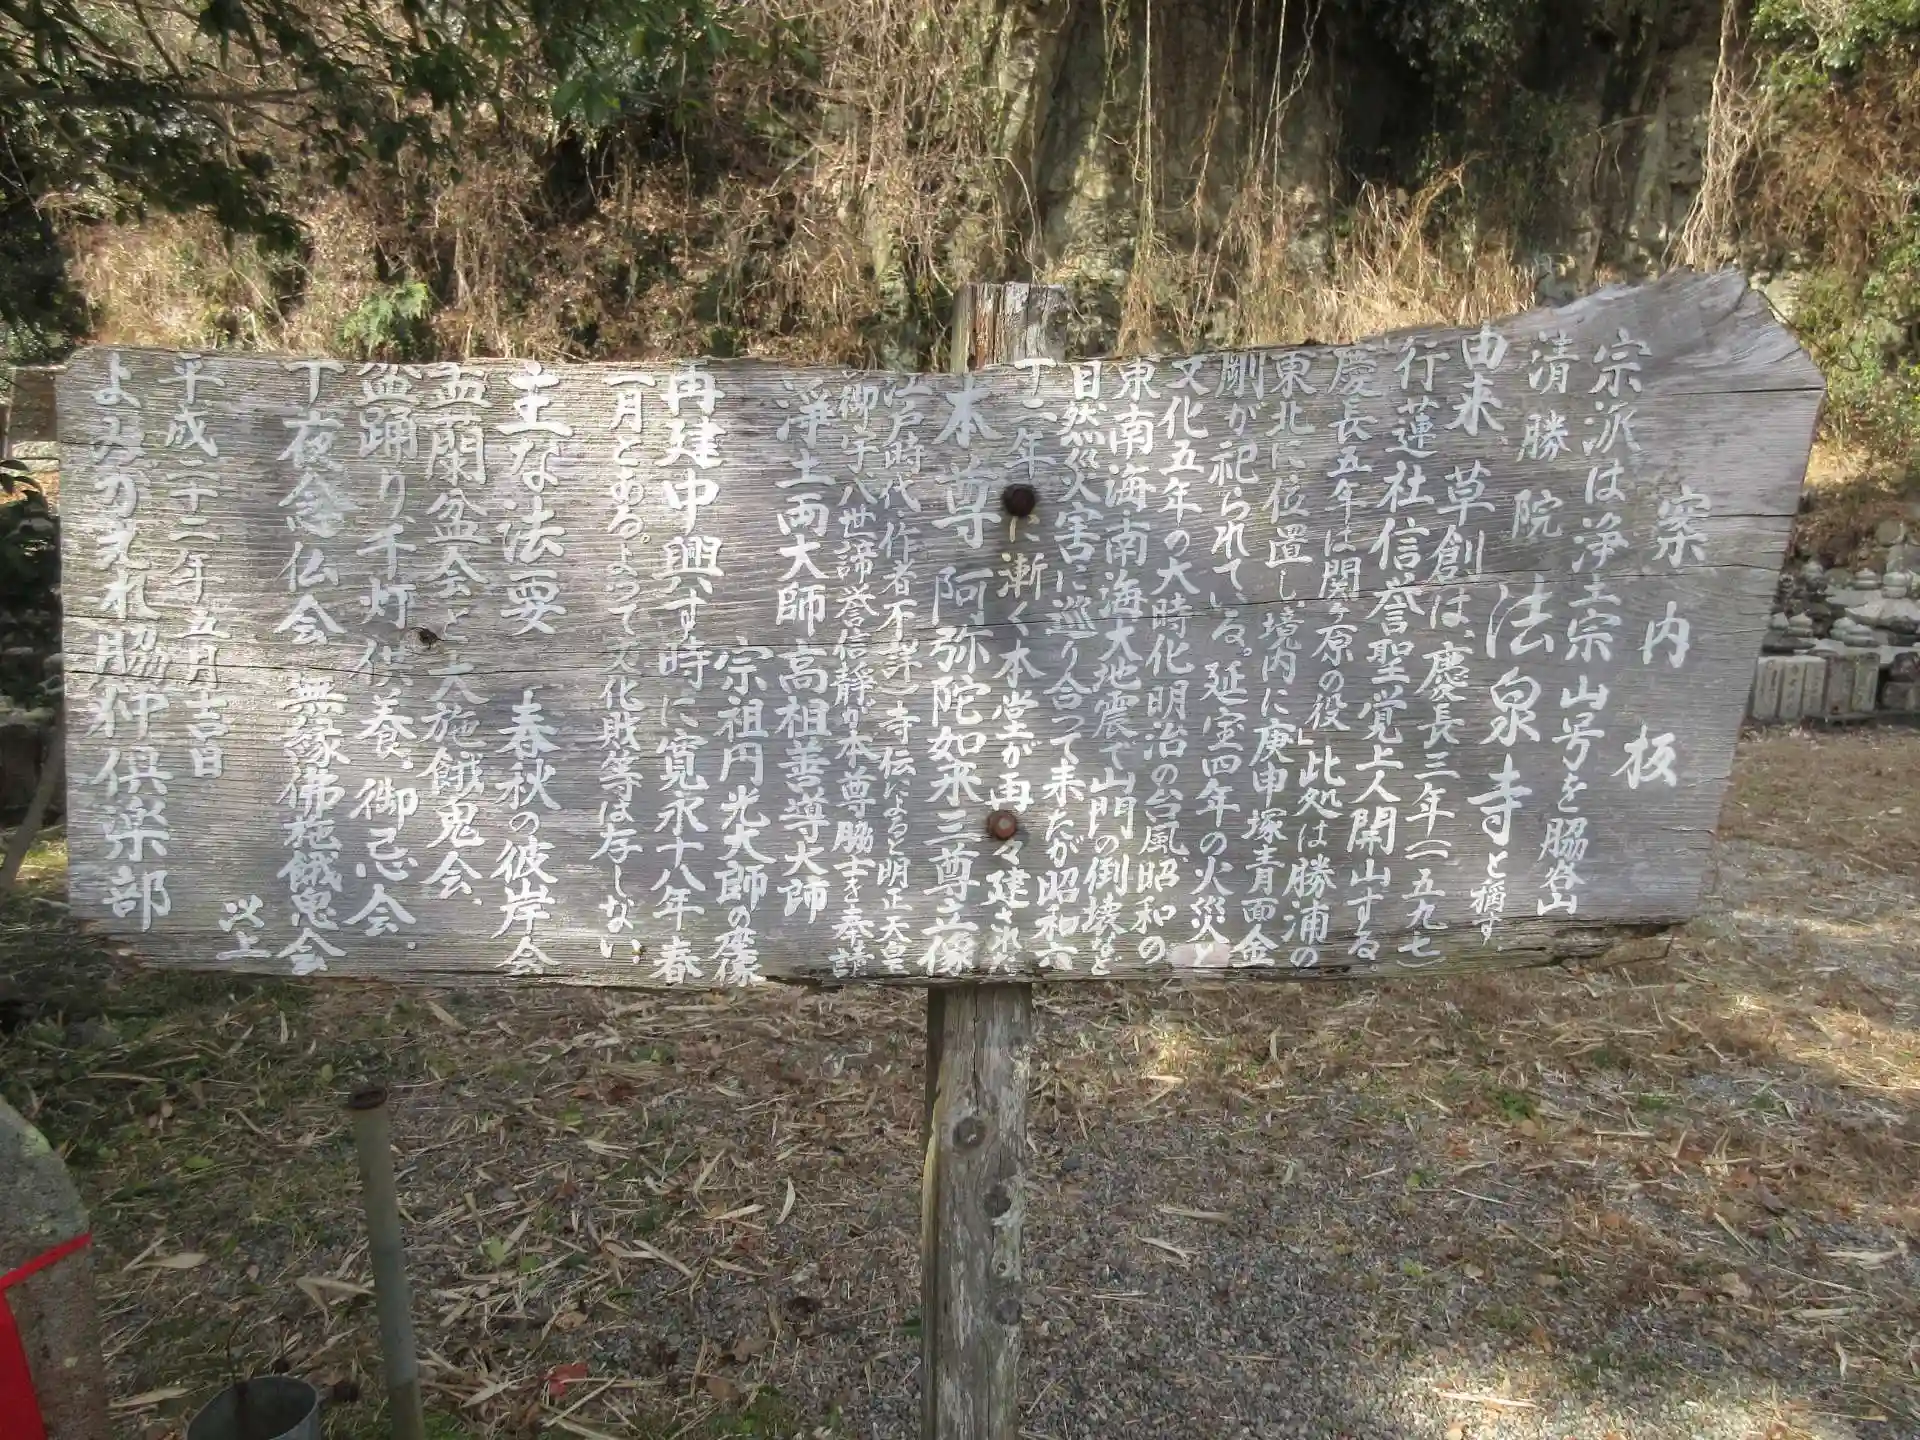 案内板
宗派は浄土宗山号を脇谷山
清勝院法泉寺と称す.
由来 草創は、慶長三年(一五九七)
行蓮社信誉聖覚上人開山する。
慶長五年は関ヶ原の役」此処は勝浦の
東北に位置し境内に庚申塚青面金
剛が祀られている。延宝四年の火災と
文化五年の大時化明治の台風、昭和の
東南海、南海大地震で山門の倒壊など
自然災害に巡り合って来たが昭和六
丁二年に漸く本堂が再々建された
本尊 阿弥陀如来三尊立像
江戸時代、作者不詳)寺伝によると明正天皇
御宇八世諦誉信靜が本尊脇士を奉請
浄土両大師高祖善導大師
宗祖円光大師の座像
再建中興す時に寛永十八年春
一月とある。よって文化財等は存しない
主な法要 春秋の彼岸会
盂蘭盆会と大施餓鬼会.
盆踊り千灯供養、御忌会.
丁夜念仏会 無縁佛施餓鬼会
以上
平成二十二年五月吉日
よみがえれ脇狎倶楽部